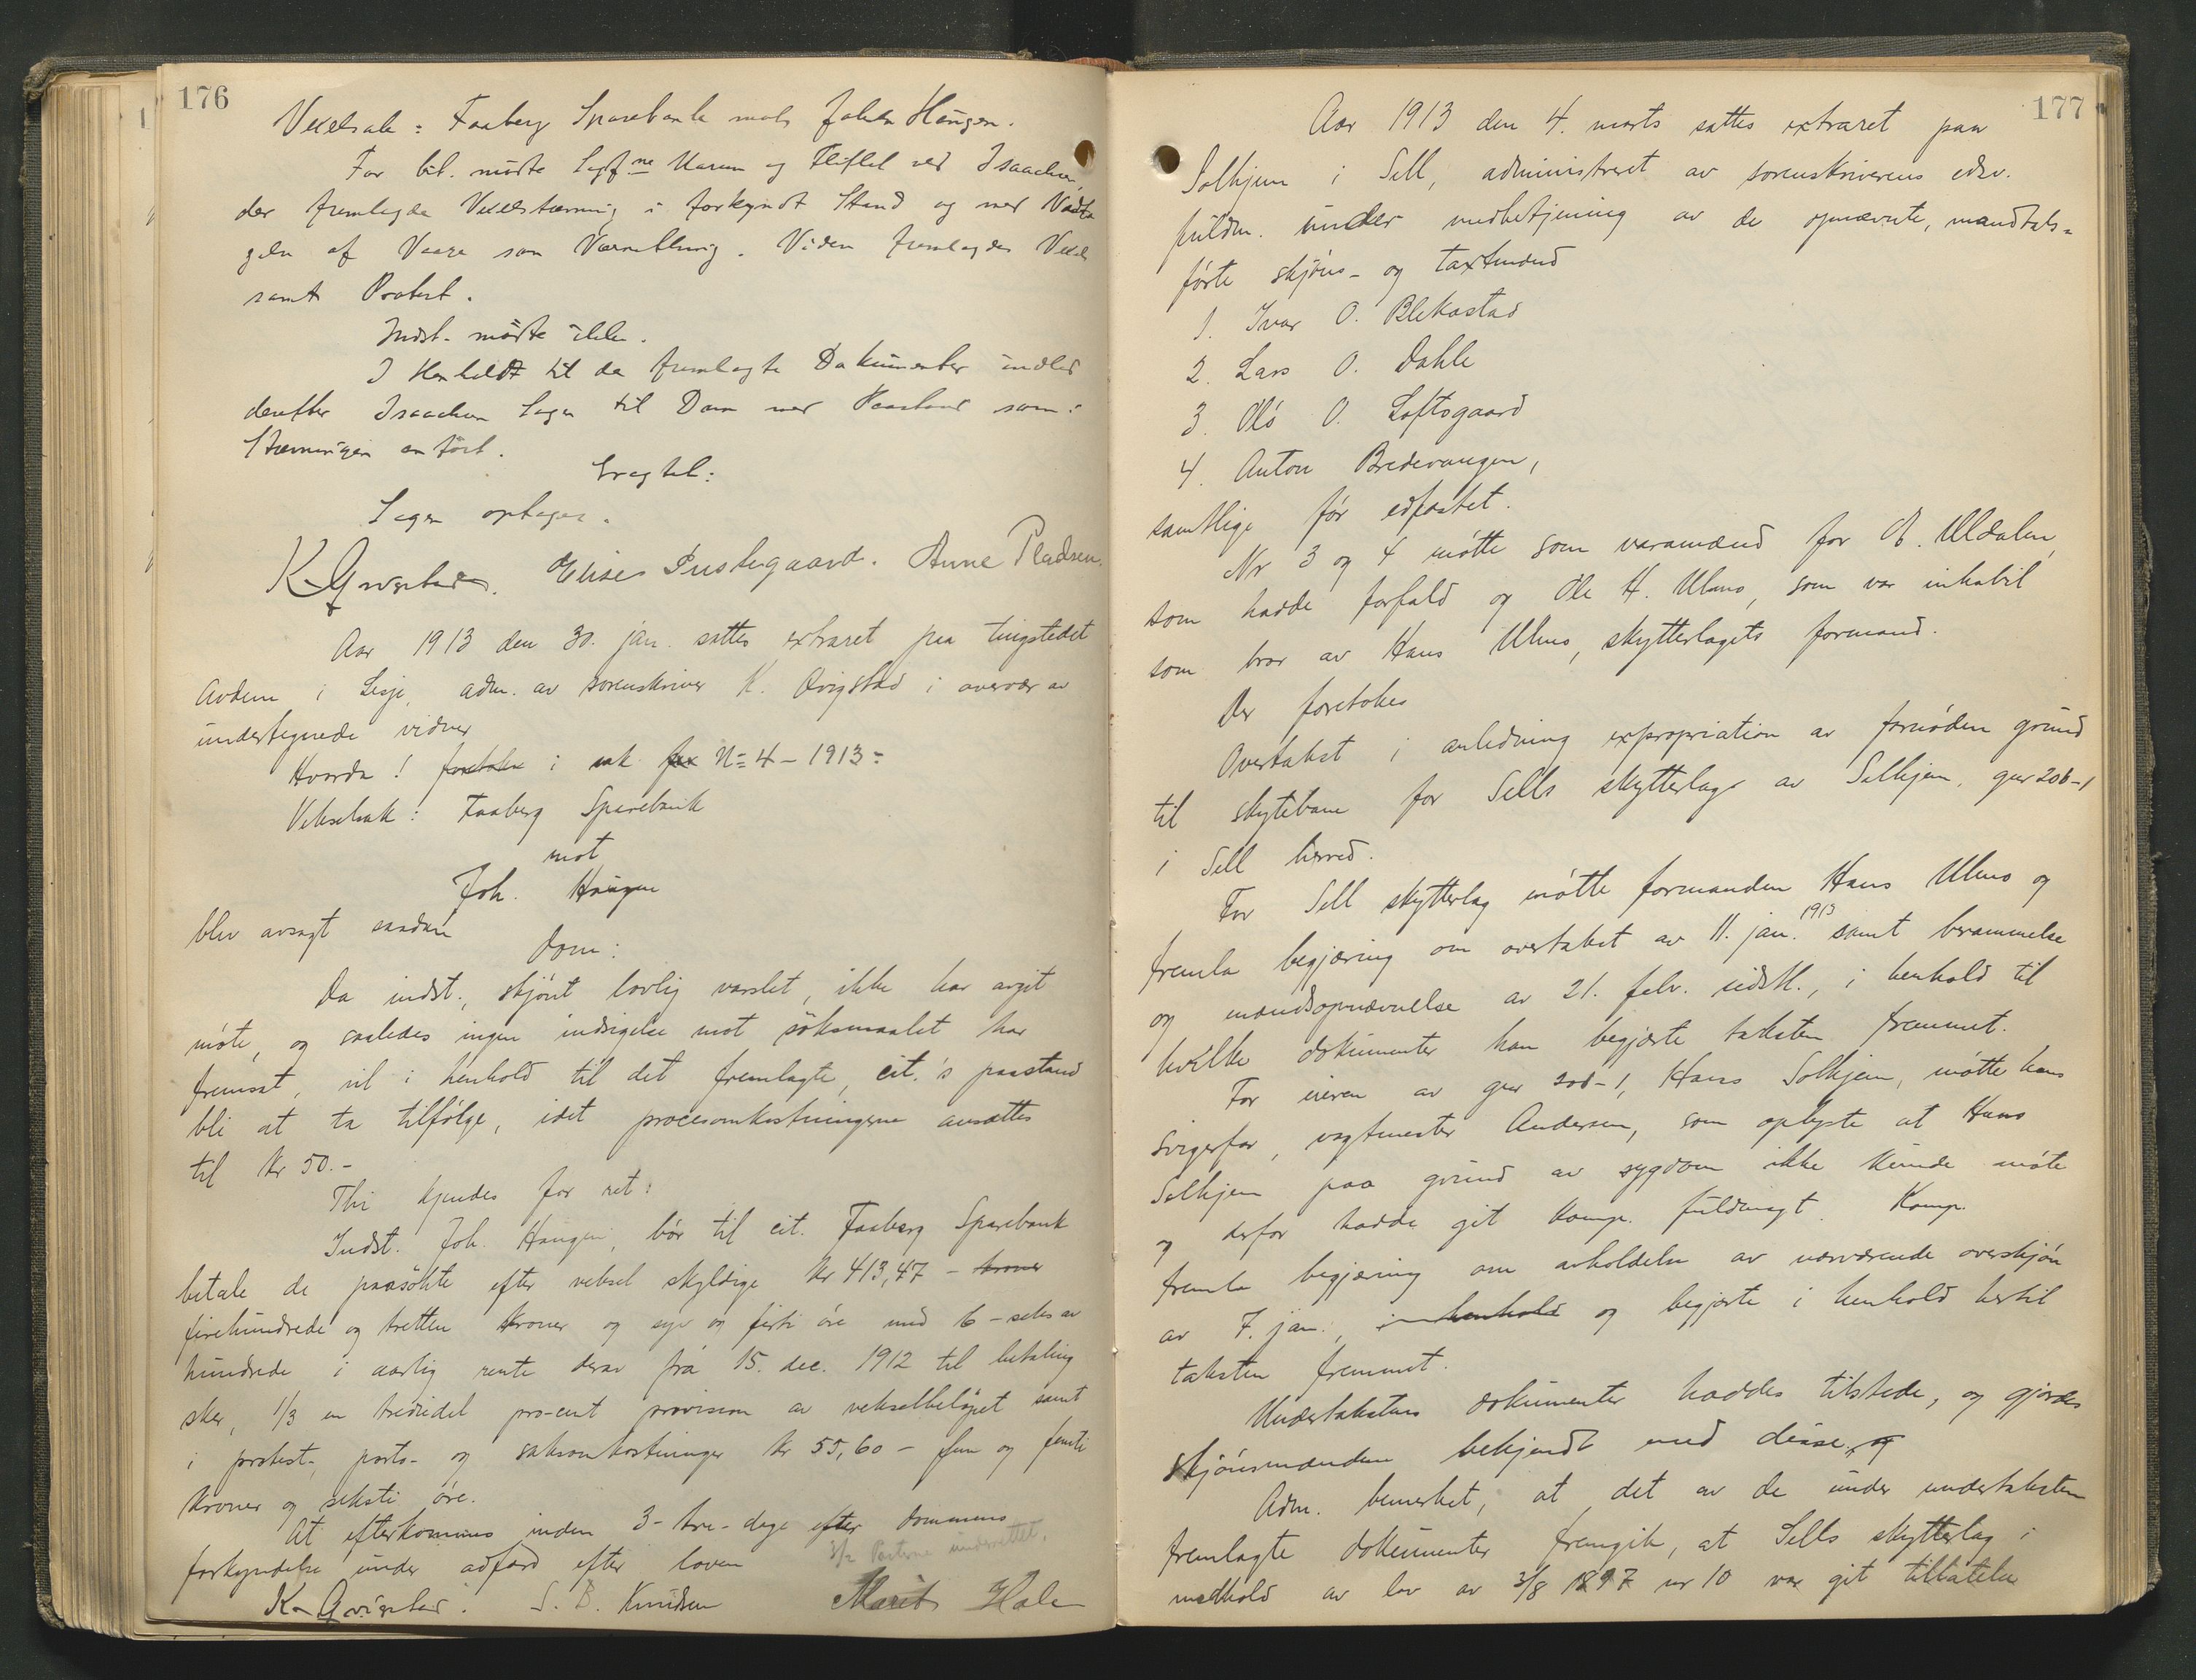 176
Vexelsak: Faaberg Sparebank mot Johan Haugen.
For cit. mødte Sagf.ne Marum og Fliflet ved Isaachsen,
der fremlagde Vexelstævning i forkyndt Stand og med Vedta
gelse af Vaage som Værneting. Viden fremlagdes Vexel
samt Protest.
Indst. mødte ikke.
I Henhold til de fremlagte Dokumenter indlod
derefter Isaachsen Sagen til Dom med Paastand som i
Stævningen anført.
Eragtet:
Sagen optages.
K Qvigstad. Elise Sustegaard. Anne Pladsen.
Aar 1913 den 30. jan. sattes extraret paa tingstedet
Avdem i Lesje, adm. av sorenskriver K. Qvigstad i overvær av
undertegnede vidner
Hvorda! foretokes i sak No 4 - 1913:
Vekselsak: Faaberg Sparebank
mot
Joh. Haugen
blev avsagt saadan
dom:
Da indst., skjønt lovlig varslet, ikke har avgit
møte, og saaledes ingen indsigelse mot søksmaalet har
fremsat, vil i henhold til det fremlagte, cit.'s paastand
bli at ta tilfølge, idet procesomkostningerne ansættes
til kr 50.-
Thi kjendes for ret:
Indst. Joh. Haugen, bør til cit. Faaberg Sparebank
betale de paasøkte efter veksel skyldige kr 413,47 - kroner
firehundrede og tretten kroner og syv og firti øre med 6 - seks av
hundrede i aarlig rente derav fra 15. dec. 1912 til betaling
sker, 1/3 en trediedel pro-cent provision av vekselbeløpet samt
i protest-, porto- og saksomkostninger kr 55,60 - fem og femti
kroner og seksti øre.
At efterkommes inden 3 - tre - dage efter dommens
forkyndelse under adfærd efter loven
3/2 Parterne underrettet.
K Qvigstad. S. B. Knudsen Marit Hole
177
Aar 1913 den 4. marts sattes extraret paa
Solhjem i Sell, administreret av sorenskriverens edsv.
fuldm. under medbetjening av de opnævnte, mandtals-
førte skjøns- og taxtmænd
1. Ivar O. Blekastad
2. Lars O. Dahle
3. Ole O. Loftsgaard
4. Anton Bredevangen,
samtlige før edfæstet.
Nr 3 og 4 møtte som varamænd for O. Uldalen,
som hadde forfald og Ole H. Ulmo, som var inhabil
som bror av Hans Ulmo, skytterlagets formand.
Der foretokes
Overtakst i anledning expropriation av fornøden grund
til skytebane for Sells skytterlag av Solhjem, gnr 206-1
i Sell herred.
For Sell skytterlag møtte formanden Hans Ulmo og
fremla begjæring om overtakst av 11. jan. 1913 samt berammelse
og mændsopnævnelse av 21. febr. sidstl., i henhold til
hvilke dokumenter han begjærte taksten fremmet.
For eieren av gnr 206-1, Hans Solhjem, møtte hans
svigerfar, vagtmester Andersen, som oplyste at Hans
Solhjem paa grund av sygdom ikke kunde møte
og derfor hadde git komp. fuldmagt. Komp.
fremla begjæring om avholdelse av nærværende overskjøn
av 7. jan., i henhold og begjærte i henhold hertil
taksten fremmet.
Undertakstens dokumenter haddes tilstede, og gjordes
skjønsmændene bekjendt med disse, og
Adm. bemerket, at det av de under undertaksten
fremlagte dokumenter fremgik, at Sells skytterlag i
medhold av lov av 3/8 1897 nr 10 var git tillatelse